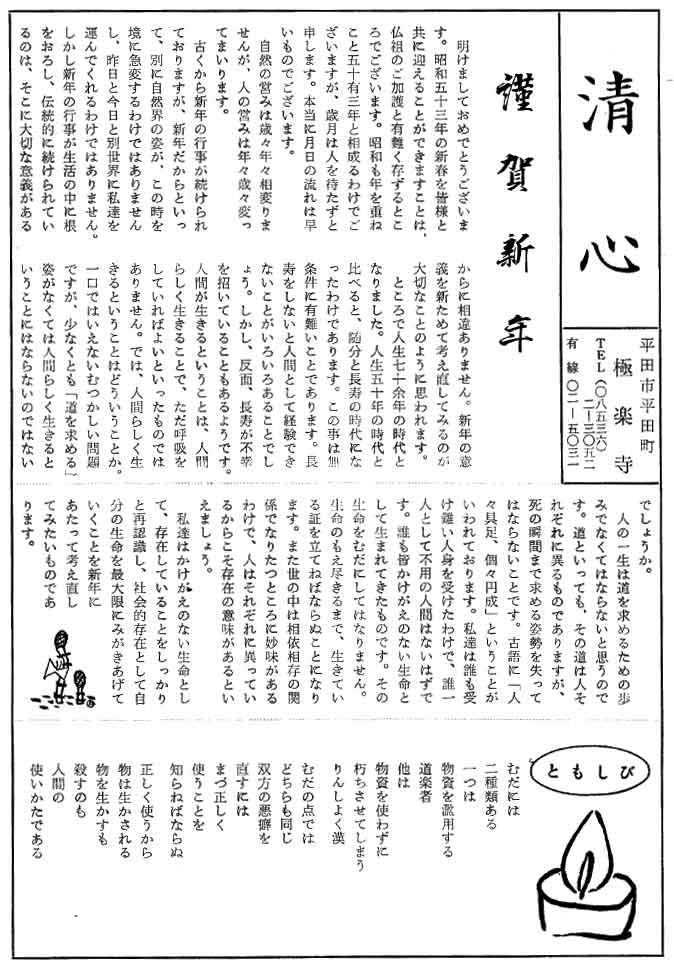 清心
平田市平田町
極楽寺
TEL(〇八五三六)
二―三〇五二
有線〇二―五〇三一
謹賀新年
明けましておめでとうございま
す。昭和五十三年の新春を皆様と
共に迎えることができますことは、
仏祖のご加護と有難く存ずるとこ
ろでございます。昭和も年を重ね
こと五十有三年と相成るわけでご
ざいますが、歳月は人を待たずと
申します。本当に月日の流れは早
いものでございます。
自然の営みは歳々年々相変りま
せんが、人の営みは年々歳々変っ
てまいります。
古くから新年の行事が続けられ
ておりますが、新年だからといっ
て、別に自然界の姿が、この時を
境に急変するわけではありません
し、昨日と今日と別世界に私達を
運んでくれるわけではありません。
しかし新年の行事が生活の中に根
をおろし、伝統的に続けられてい
るのは、そこに大切な意義がある
からに相違ありません。新年の意
義を新ためて考え直してみるのが
大切なことのように思われます。
ところで人生七十余年の時代と
なりました。人生五十年の時代と
比べると、随分と長寿の時代にな
ったわけであります。この事は無
条件に有難いことであります。長
寿をしないと人間として経験でき
ないことがいろいろあることでし
ょう。しかし、反面、長寿が不幸
を招いていることもあるようです。
人間が生きるということは、人間
らしく生きることで、ただ呼吸を
していればよいといったものでは
ありません。では、人間らしく生
きるということはどういうことか。
一口ではいえないむつかしい問題
ですが、少なくとも「道を求める」
姿がなくては人間らしく生きると
いうことにはならないのではない
でしょうか。
人の一生は道を求めるための歩
みでなくてはならないと思うので
す。道といっても、その道は人そ
れぞれに異るものでありますが、
死の瞬間まで求める姿勢を失って
はならないことです。古語に「人
々具足、個々円成」ということが
いわれております。私達は誰も受
け難い人身を受けたわけで、誰一
人として不用の人間はないはずで
す。誰も皆かけがえのない生命と
して生まれてきたものです。その
生命をむだにしてはなりません。
生命のもえ尽きるまで、生きてい
る証を立てねばならぬことになり
ます。また世の中は相依相存の関
係でなりたつところに妙味がある
わけで、人はそれぞれに異ってい
るからこそ存在の意味があるとい
えましょう。
私達はかけがえのない生命とし
て、存在していることをしっかり
と再認識し、社会的存在として自
分の生命を最大限にみがきあげて
いくことを新年に
あたって考え直し
てみたいものであ
ります。
ともしび
むだには
二種類ある
一つは
物資を濫用する
道楽者
他は
物資を使わずに
朽ちさせてしまう
りんしよく漢
むだの点では
どちらも同じ
双方の悪癖を
直すには
まづ正しく
使うことを
知らねばならぬ
正しく使うから
物は生かされる
物を生かすも
殺すのも
人間の
使いかたである